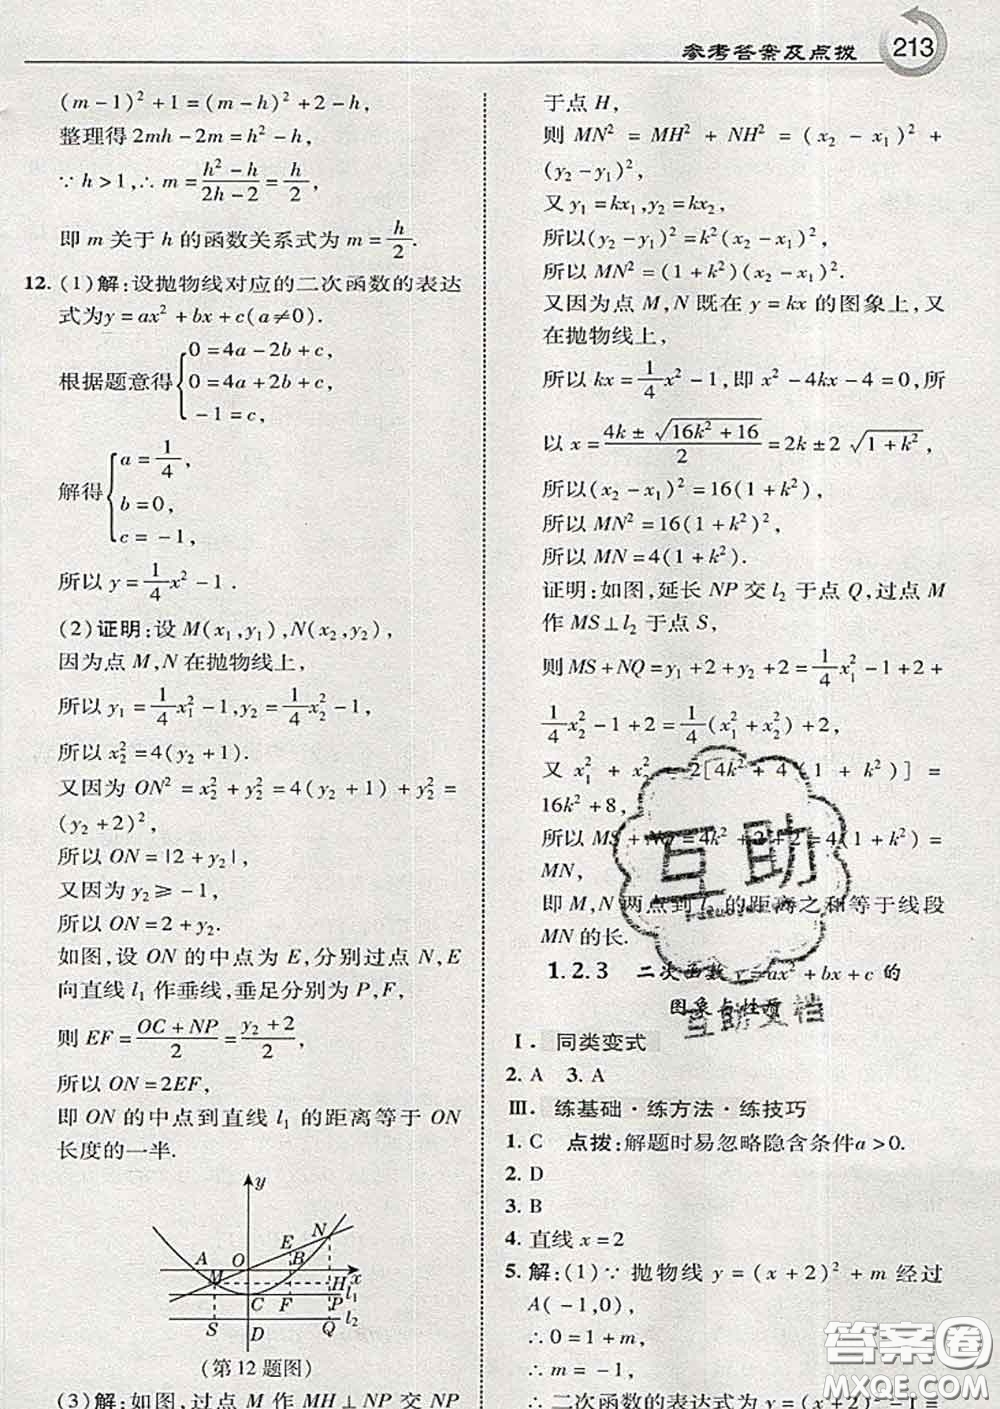 参考答案及点拨
213
(m-1)²+1=(m-h)²+2-h,
整理得2mh-2m=h²-h,
∵h>1,∴m=\frac{h²-h}{2h-2}=\frac{h}{2},
即 m 关于 h 的函数关系式为 m=\frac{h}{2}.
12. (1)解:设抛物线对应的二次函数的表达
式为y=ax²+bx+c(a≠0).
根据题意得{0=4a-2b+c,
0=4a+2b+c,
-1=c,
解得{a=\frac{1}{4},
b=0,
c=-1,
所以 y=\frac{1}{4}x²-1.
(2)证明:设 M(x₁,y₁),N(x₂,y₂),
因为点 M,N 在抛物线上,
所以 y₁=\frac{1}{4}x₁²-1,y₂=\frac{1}{4}x₂²-1,
所以 x₂²=4(y₂+1).
又因为 ON²=x₂²+y₂²=4(y₂+1)+y₂²=
(y₂+2)²,
所以 ON=|2+y₂|,
又因为 y₂≥-1,
所以 ON=2+y₂.
如图,设 ON 的中点为 E,分别过点 N,E
向直线 l₁ 作垂线,垂足分别为 P,F,
则 EF=\frac{OC+NP}{2}=\frac{y₂+2}{2},
所以 ON=2EF,
即 ON 的中点到直线 l₁ 的距离等于 ON
长度的一半.
y
N
E
A O B
M H x
l₁
C F P
l₂
S D Q
(第12题图)
(3)解:如图,过点 M 作 MH⊥NP 交 NP
于点 H,
则 MN²=MH²+NH²=(x₂-x₁)²+
(y₂-y₁)²,
又 y₁=kx₁,y₂=kx₂,
所以(y₂-y₁)²=k²(x₂-x₁)²,
所以 MN²=(1+k²)(x₂-x₁)²,
又因为点 M,N 既在 y=kx 的图象上,又
在抛物线上,
所以 kx=\frac{1}{4}x²-1,即 x²-4kx-4=0,所
以 x=\frac{4k±\sqrt{16k²+16}}{2}=2k±2\sqrt{1+k²},
所以(x₂-x₁)²=16(1+k²),
所以 MN²=16(1+k²)²,
所以 MN=4(1+k²).
证明:如图,延长 NP 交 l₂ 于点 Q,过点 M
作 MS⊥l₂ 于点 S,
则 MS+NQ=y₁+2+y₂+2=\frac{1}{4}x₁²-1+2+
\frac{1}{4}x₂²-1+2=\frac{1}{4}(x₁²+x₂²)+2,
又 x₁²+x₂²=2[4k²+4(1+k²)]=
16k²+8,
所以 MS+NQ=4k²+2+2=4(1+k²)=
MN,
即 M,N 两点到 l₂ 的距离之和等于线段
MN 的长.
1.2.3 二次函数 y=ax²+bx+c 的
图象与性质
Ⅰ. 同类变式
2. A 3. A
Ⅲ. 练基础·练方法·练技巧
1. C 点拨:解题时易忽略隐含条件a>0.
2. D
3. B
4. 直线 x=2
5. 解:(1)∵抛物线 y=(x+2)²+m 经过
A(-1,0),
∴0=1+m,
∴m=-1,
∴二次函数的表达式为 y=(x+2)²-1=
互助
互助文档
答案圈
MXQE.COM